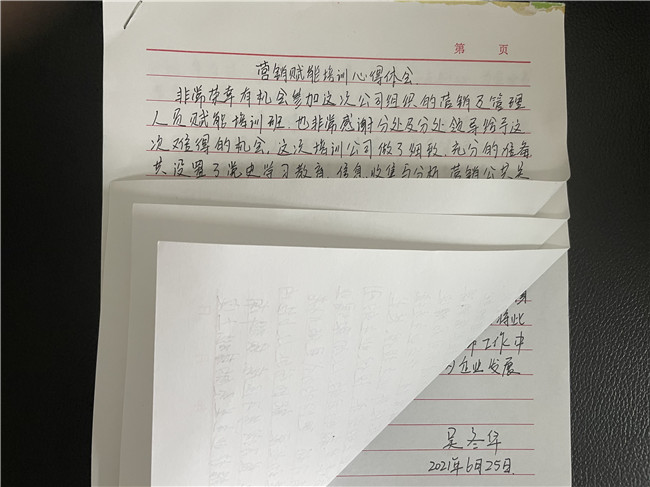 第 页
营销赋能培训心得体会
非常荣幸有机会参加这次公司组织的营销及管理
人员赋能培训班,也非常感谢分处及分处领导给予这
次难得的机会。这次培训公司做了细致、充分的准备
共设置了党史学习教育、信息收集与分析、营销公共关
将此
工作中
企业发展
2021年6月25日